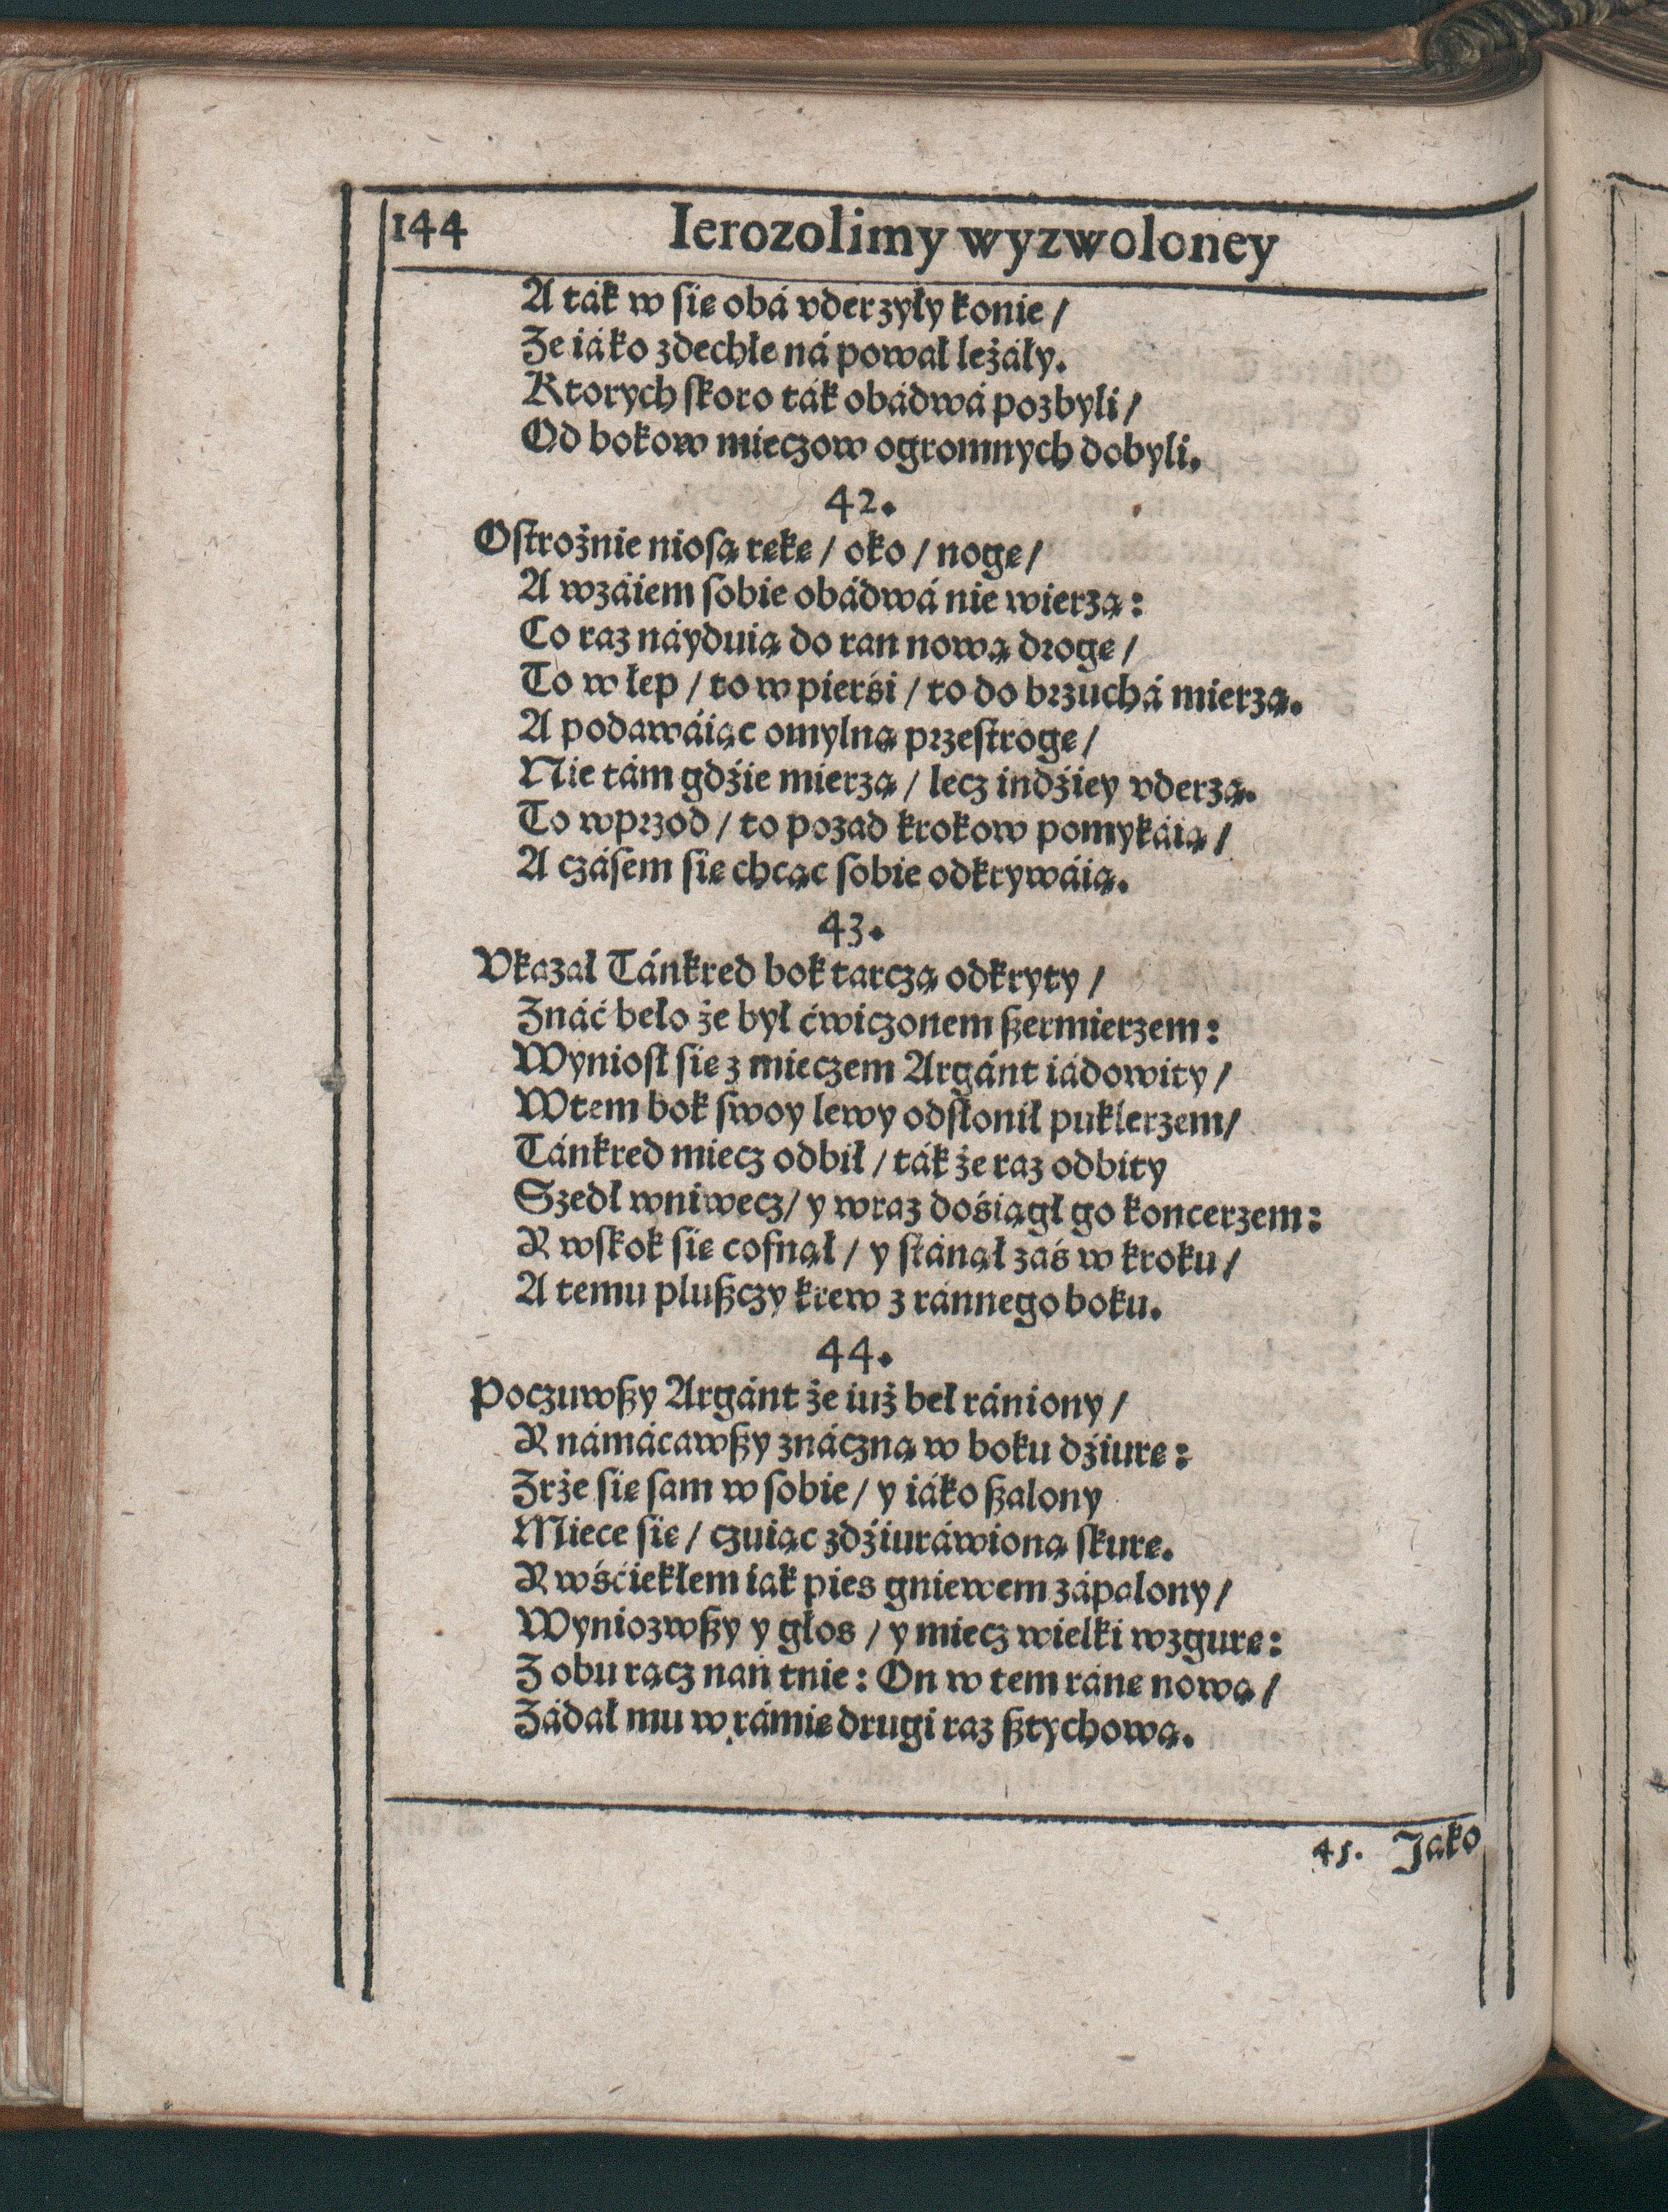 144 Ierozolimy wyzwoloney
A ták w się obá vderzyły konie /
Że iáko zdechłe ná pował leżáły.
Ktorych skoro ták obádwá pozbyli /
Od bokow mieczow ogromnych dobyli.
42.
Ostrożnie niosą rękę / oko / nogę /
A wzáiem sobie obádwá nie wierzą:
Co raz náyduią do ran nową drogę /
To w łep / to w pierśi / to do brzuchá mierzą.
A podawáiąc omylną przestrogę /
Nie tám gdźie mierzą / lecz indźiey vderzą.
To wprzod / to pozad krokow pomykáią /
A czásem się chcąc sobie odkrywáią.
43.
Vkazał Tánkred bok tarczą odkryty /
Znáć beło że był ćwiczonem szermierzem:
Wyniosł się z mieczem Argánt iádowity /
Wtem bok swoy lewy odsłonił puklerzem /
Tánkred miecz odbił / ták że raz odbity
Szedł wniwecz / y wraz dośiągł go koncerzem:
R wskok się cofnął / y stánął záś w kroku /
A temu pluszczy krew z ránnego boku.
44.
Poczuwszy Argánt że iuż beł rániony /
R námácawszy znáczną w boku dźiurę:
Zrże się sam w sobie / y iáko szalony
Miece się / czuiąc zdźiuráwioną skurę.
R wśćiekłem iak pies gniewem zápalony /
Wyniozwszy y głos / y miecz wielki wzgurę:
Z obu rącz nań tnie: On w tem ránę nową /
Zádał mu w rámię drugi raz sztychową.
45. Jako